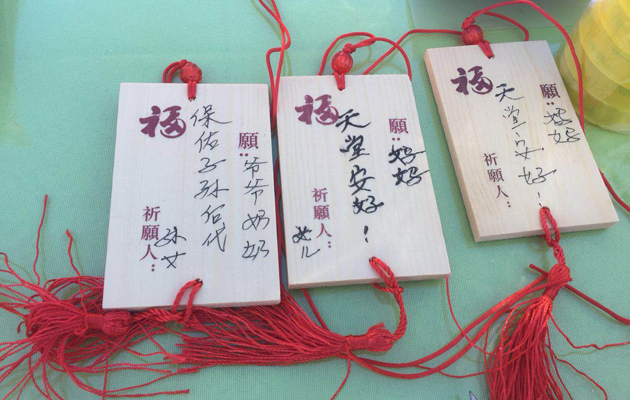 福
願：爷爷奶奶
保佑子孙后代
祈願人：孙女
福
願：妈妈
天堂安好！
祈願人：女儿
福
願：妈妈
天堂安好！
祈願人：